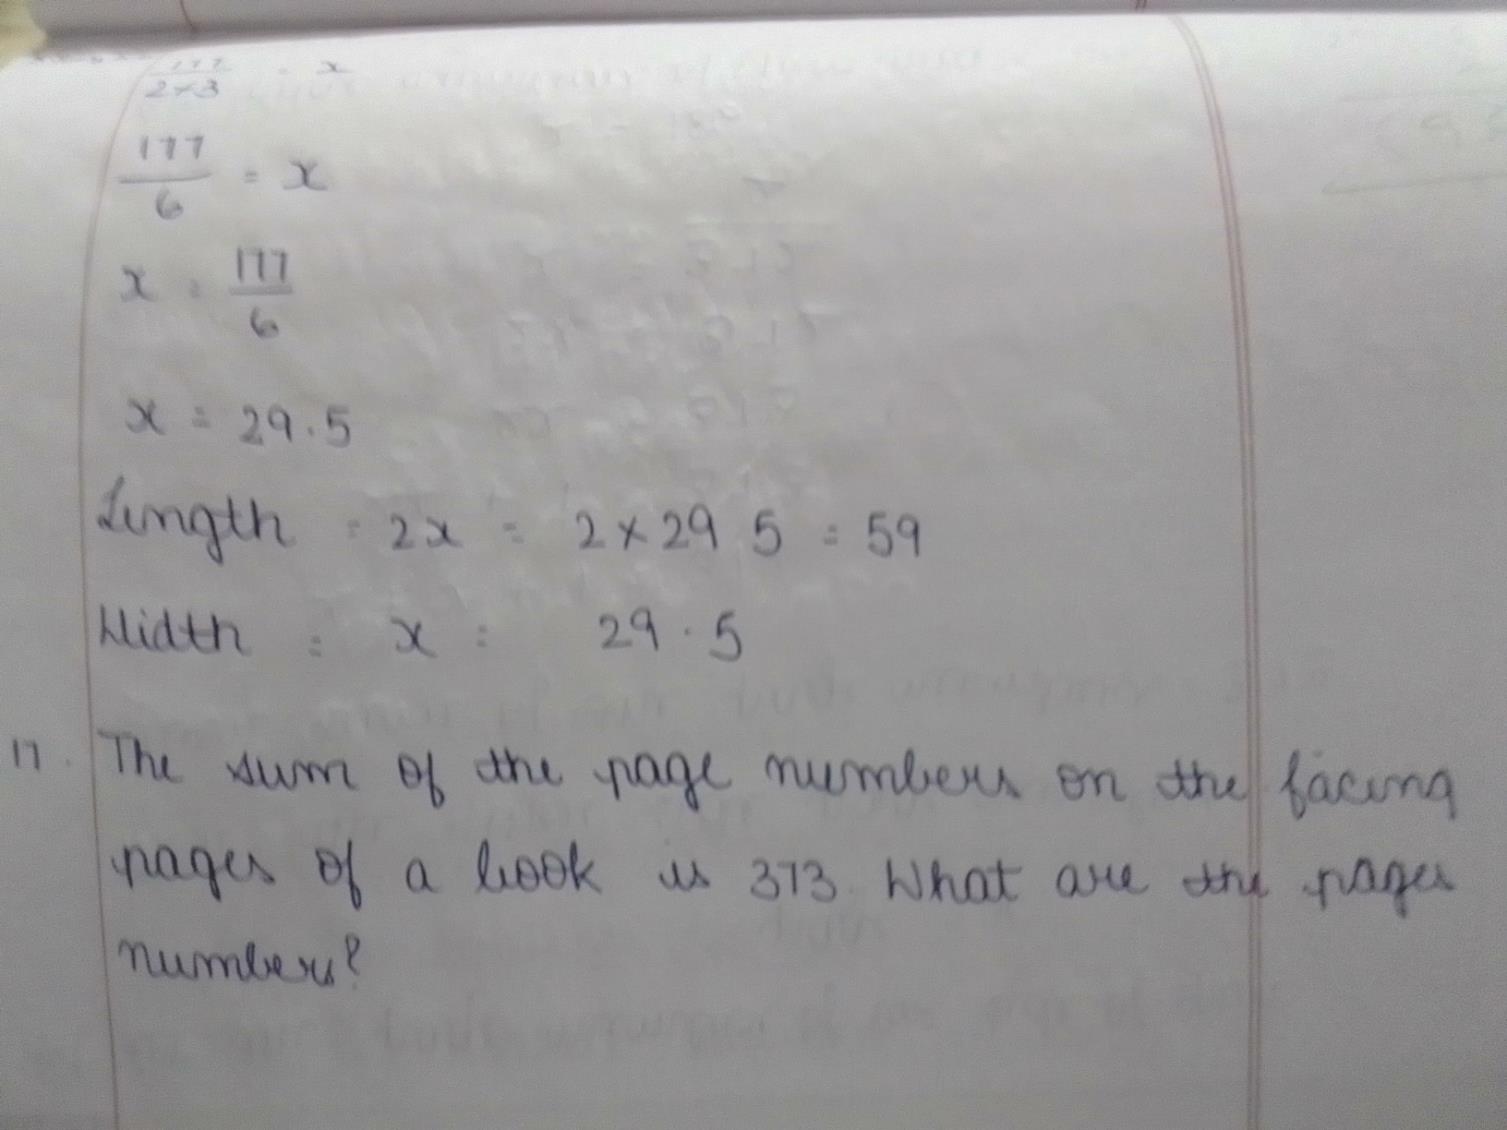 177/2×3 = x
177/6 = x
x = 177/6
x = 29.5
Length = 2x = 2 × 29 5 = 59
Width = x = 29.5
17. The sum of the page numbers on the facing
pages of a book is 373. What are the pages
numbers?